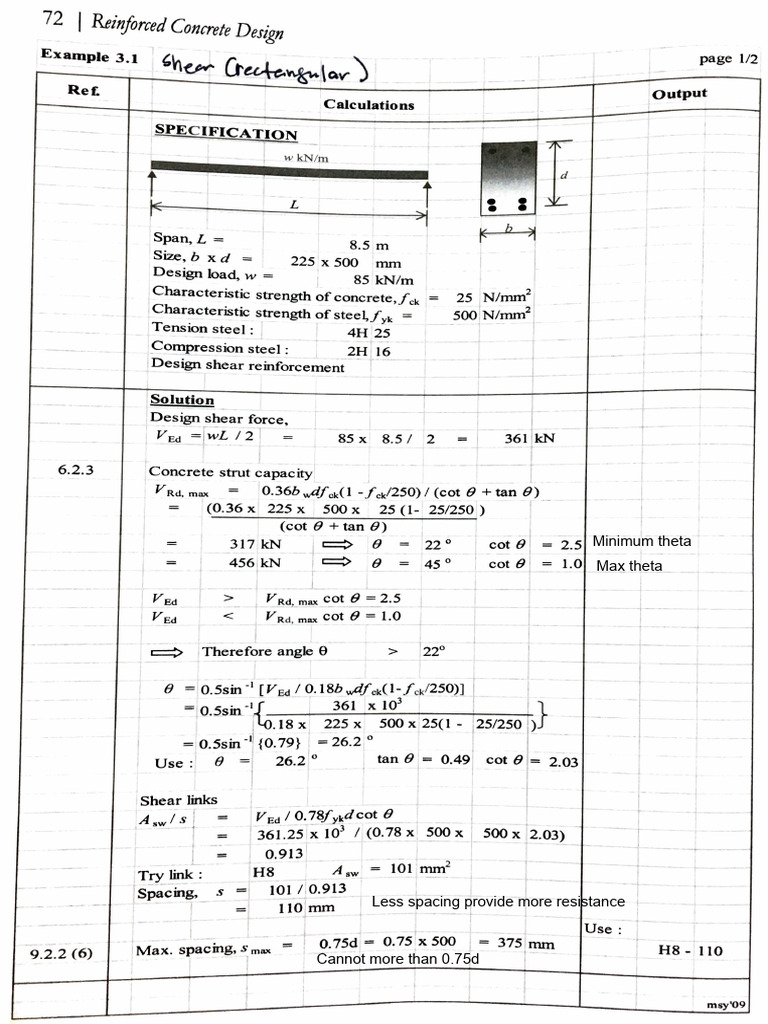 72 | Reinforced Concrete Design
Example 3.1 Shear (rectangular) page 1/2
Ref. Calculations Output
SPECIFICATION
w kN/m
d
L
b
Span, L = 8.5 m
Size, b x d = 225 x 500 mm
Design load, w = 85 kN/m
Characteristic strength of concrete, fck = 25 N/mm²
Characteristic strength of steel, fyk = 500 N/mm²
Tension steel : 4H 25
Compression steel : 2H 16
Design shear reinforcement
Solution
Design shear force,
VEd = wL / 2 = 85 x 8.5 / 2 = 361 kN
6.2.3 Concrete strut capacity
VRd, max = 0.36bwdfck(1 - fck/250) / (cot θ + tan θ)
= (0.36 x 225 x 500 x 25 (1- 25/250 )
(cot θ + tan θ)
= 317 kN ⇒ θ = 22 ° cot θ = 2.5 Minimum theta
= 456 kN ⇒ θ = 45 ° cot θ = 1.0 Max theta
VEd > VRd, max cot θ = 2.5
VEd < VRd, max cot θ = 1.0
⇒ Therefore angle θ > 22°
θ = 0.5sin⁻¹ [VEd / 0.18bwdfck(1- fck/250)]
= 0.5sin⁻¹ { 361 x 10³ }
0.18 x 225 x 500 x 25(1 - 25/250 )
= 0.5sin⁻¹ {0.79} = 26.2 °
Use : θ = 26.2 ° tan θ = 0.49 cot θ = 2.03
Shear links
Asw / s = VEd / 0.78fykd cot θ
= 361.25 x 10³ / (0.78 x 500 x 500 x 2.03)
= 0.913
Try link : H8 Asw = 101 mm²
Spacing, s = 101 / 0.913
= 110 mm Less spacing provide more resistance
Use :
9.2.2 (6) Max. spacing, smax = 0.75d = 0.75 x 500 = 375 mm H8 - 110
Cannot more than 0.75d
msy'09